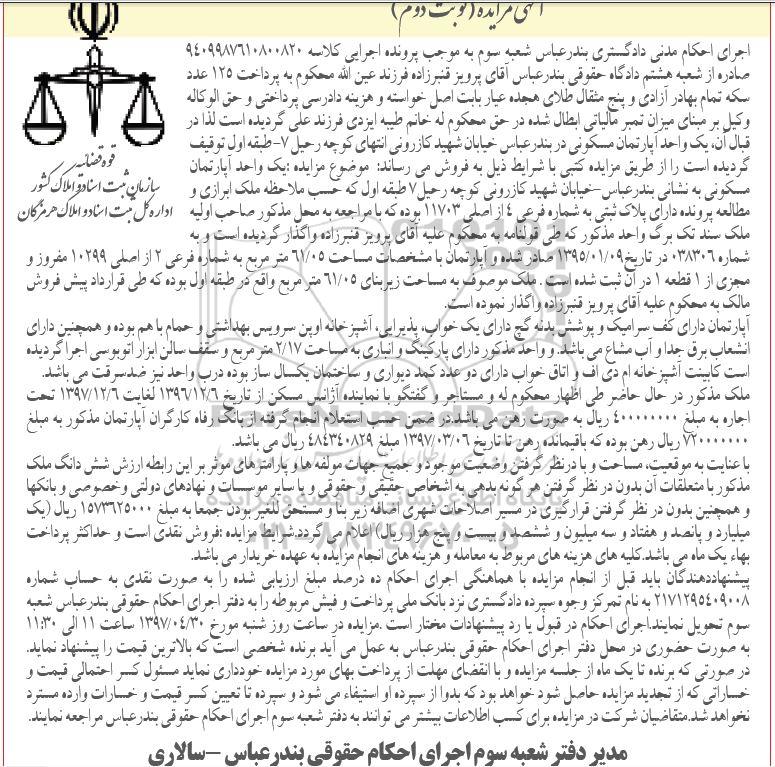 آگهی مزایده (نوبت دوم)
قوه قضائیه
سازمان ثبت اسناد و املاک کشور
اداره کل ثبت اسناد و املاک هرمزگان
اجرای احکام مدنی دادگستری بندرعباس شعبه سوم به موجب پرونده اجرایی کلاسه ۹۴۰۹۹۸۷۶۱۰۸۰۰۸۲۰
صادره از شعبه هشتم دادگاه حقوقی بندرعباس آقای پرویز قنبرزاده فرزند عین الله محکوم به پرداخت ۱۲۵ عدد
سکه تمام بهادر آزادی و پنج مثقال طلای هجده عیار بابت اصل خواسته و هزینه دادرسی پرداختی و حق الوکاله
وکیل بر مبنای میزان تمبر مالیاتی ابطال شده در حق محکوم له خانم طیبه ایزدی فرزند علی گردیده است لذا در
قبال آن، یک واحد آپارتمان مسکونی در بندرعباس خیابان شهید کازرونی انتهای کوچه رحیل ۷-طبقه اول توقیف
گردیده است را از طریق مزایده کتبی با شرایط ذیل به فروش می رساند: موضوع مزایده :یک واحد آپارتمان
مسکونی به نشانی بندرعباس-خیابان شهید کازرونی کوچه رحیل۷ طبقه اول که حسب ملاحظه ملک ابرازی و
مطالعه پرونده دارای پلاک ثبتی به شماره فرعی ۴ از اصلی ۱۱۷۰۳ بوده که با مراجعه به محل مذکور صاحب اولیه
ملک سند تک برگ واحد مذکور که طی قولنامه به محکوم علیه آقای پرویز قنبرزاده واگذار گردیده است و به
شماره ۰۳۸۳۰۶ در تاریخ۱۳۹۵/۰۱/۰۹ صادر شده و آپارتمان با مشخصات مساحت ۶۱/۰۵ متر مربع به شماره فرعی ۲ از اصلی ۱۰۲۹۹ مفروز و
مجزی از ۱ قطعه ۱ در آن ثبت شده است . ملک موصوف به مساحت زیربنای ۶۱/۰۵ متر مربع واقع در طبقه اول بوده که طی قرارداد پیش فروش
مالک به محکوم علیه آقای پرویز قنبرزاده واگذار نموده است.
آپارتمان دارای کف سرامیک و پوشش بدنه گچ دارای یک خواب، پذیرایی، آشپزخانه اوپن سرویس بهداشتی و حمام با هم بوده و همچنین دارای
انشعاب برق جدا و آب مشاع می باشد. و واحد مذکور دارای پارکینگ و انباری به مساحت ۲/۱۷ متر مربع و سقف سالن ابزار اتوبوسی اجرا گردیده
است کابینت آشپزخانه ام دی اف و اتاق خواب دارای دو عدد کمد دیواری و ساختمان یکسال ساز بوده درب واحد نیز ضدسرقت می باشد.
ملک مذکور در حال حاضر طی اظهار محکوم له و مستاجر و گفتگو با نماینده آژانس مسکن از تاریخ ۱۳۹۶/۱۲/۶ لغایت ۱۳۹۷/۱۲/۶ تحت
اجاره به مبلغ ۴۰۰۰۰۰۰۰۰ ریال به صورت رهن می باشد.در ضمن حسب استعلام انجام گرفته از بانک رفاه کارگران آپارتمان مذکور به مبلغ
۷۲۰۰۰۰۰۰۰ ریال رهن بوده که باقیمانده رهن تا تاریخ ۱۳۹۷/۰۳/۰۶ مبلغ ۴۸۴۳۴۰۸۲۹ ریال می باشد.
با عنایت به موقعیت، مساحت و با درنظر گرفتن وضعیت موجود و جمیع جهات مولفه ها و پارامترهای موثر بر این رابطه ارزش شش دانگ ملک
مذکور با متعلقات آن بدون در نظر گرفتن هر گونه بدهی به اشخاص حقیقی و حقوقی و یا سایر موسسات و نهادهای دولتی وخصوصی و بانکها
و همچنین بدون در نظر گرفتن قرارگیری در مسیر اصلاحات شهری اضافه زیر بنا و مستحق للغیر بودن جمعا به مبلغ ۱۵۷۳۶۲۵۰۰۰ ریال (یک
میلیارد و پانصد و هفتاد و سه میلیون و ششصد و بیست و پنج هزار ریال)اعلام می گردد.شرایط مزایده :فروش نقدی است و حداکثر پرداخت
بهاء یک ماه می باشد.کلیه های هزینه های مربوط به معامله و هزینه های انجام مزایده به عهده خریدار می باشد.
پیشنهاددهندگان باید قبل از انجام مزایده با هماهنگی اجرای احکام ده درصد مبلغ ارزیابی شده را به صورت نقدی به حساب شماره
۲۱۷۱۲۹۵۴۰۹۰۰۸ به نام تمرکز وجوه سپرده دادگستری نزد بانک ملی پرداخت و فیش مربوطه را به دفتر اجرای احکام حقوقی بندرعباس شعبه
سوم تحویل نمایند.اجرای احکام در قبول یا رد پیشنهادات مختار است .مزایده در ساعت روز شنبه مورخ ۱۳۹۷/۰۴/۳۰ ساعت ۱۱ الی ۱۱:۳۰
به صورت حضوری در محل دفتر اجرای احکام حقوقی بندرعباس به عمل می آید برنده شخصی است که بالاترین قیمت را پیشنهاد نماید.
در صورتی که برنده تا یک ماه از جلسه مزایده و با انقضای مهلت از پرداخت بهای مورد مزایده خودداری نماید مسئول کسر احتمالی قیمت و
خساراتی که از تجدید مزایده حاصل شود خواهد بود که بدوا از سپرده او استیفاء می شود و سپرده تا تعیین کسر قیمت و خسارات وارده مسترد
نخواهد شد.متقاضیان شرکت در مزایده برای کسب اطلاعات بیشتر می توانند به دفتر شعبه سوم اجرای احکام حقوقی بندرعباس مراجعه نمایند.
مدیر دفتر شعبه سوم اجرای احکام حقوقی بندرعباس -سالاری
ParsNamadData
پایگاه اطلاع رسانی مناقصه و مزایده